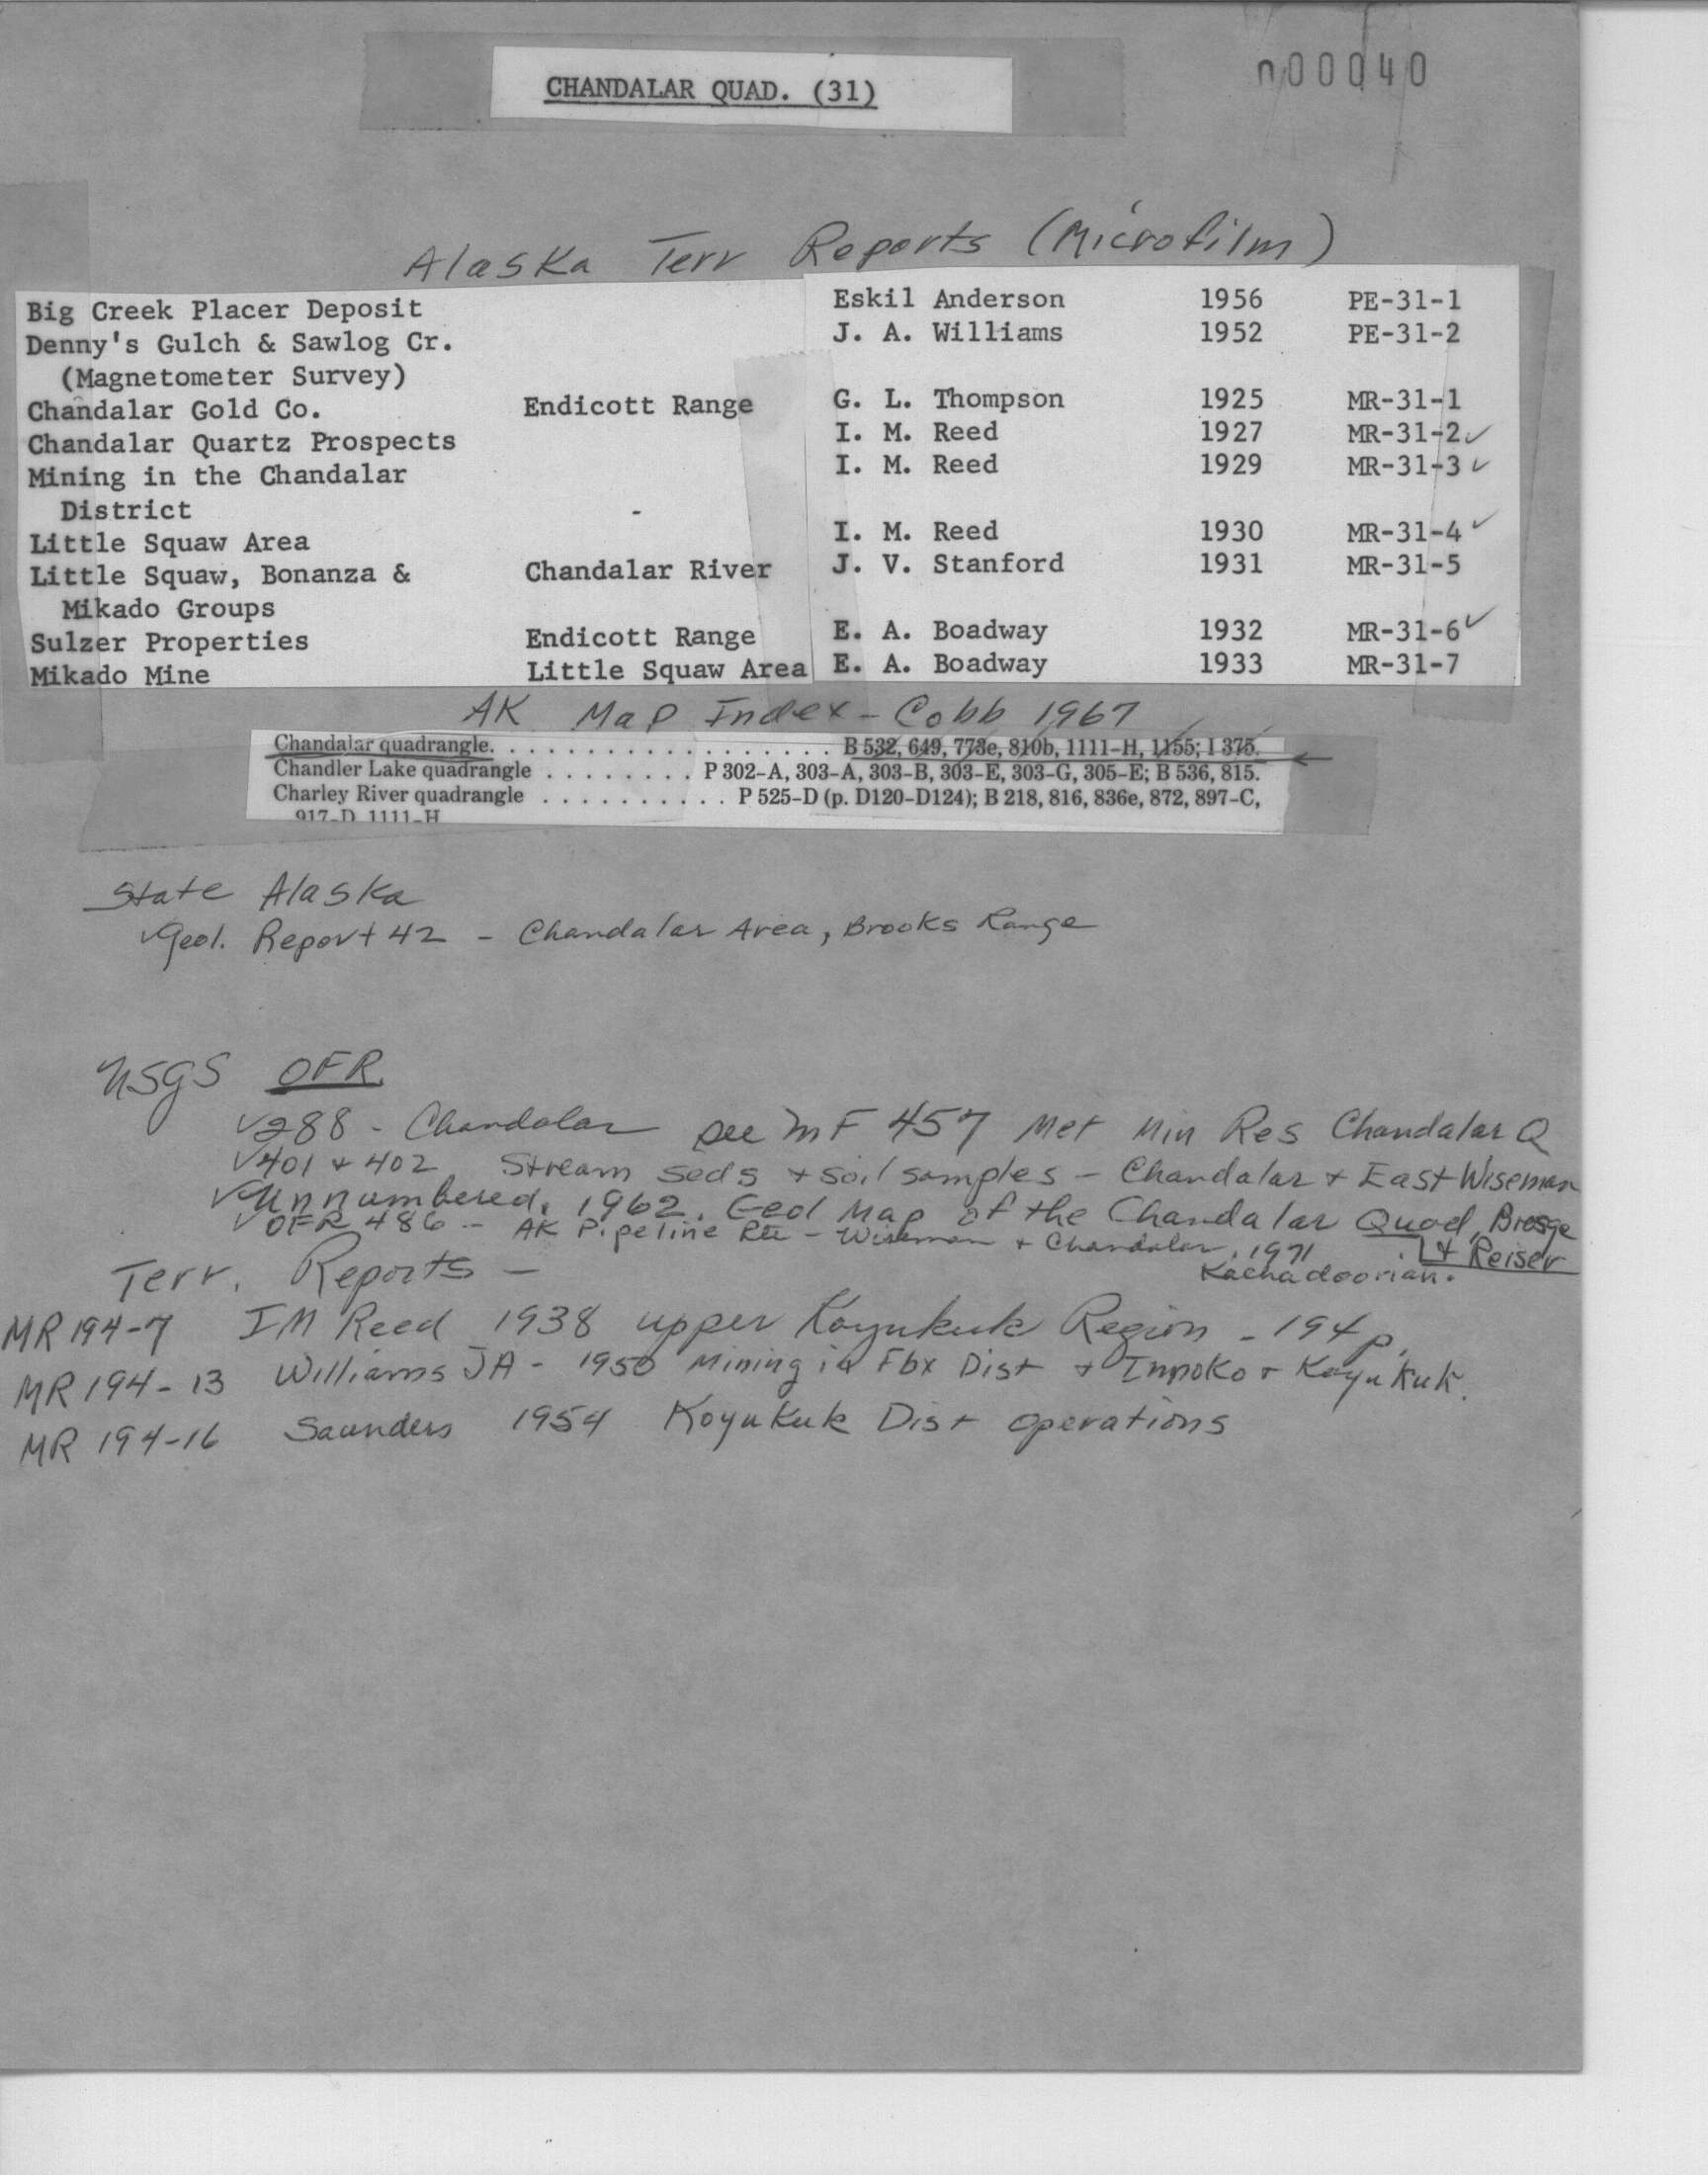 CHANDALAR QUAD. (31)
000040
Alaska Terr Reports (Microfilm)
Big Creek Placer Deposit Eskil Anderson 1956 PE-31-1
Denny's Gulch & Sawlog Cr. J. A. Williams 1952 PE-31-2
(Magnetometer Survey)
Chandalar Gold Co. Endicott Range G. L. Thompson 1925 MR-31-1
Chandalar Quartz Prospects I. M. Reed 1927 MR-31-2 ✓
Mining in the Chandalar I. M. Reed 1929 MR-31-3 ✓
District -
Little Squaw Area I. M. Reed 1930 MR-31-4 ✓
Little Squaw, Bonanza & Chandalar River J. V. Stanford 1931 MR-31-5
Mikado Groups
Sulzer Properties Endicott Range E. A. Boadway 1932 MR-31-6 ✓
Mikado Mine Little Squaw Area E. A. Boadway 1933 MR-31-7
AK Map Index - Cobb 1967
Chandalar quadrangle. . . . . . . . . . . . . . . . . . . B 532, 649, 773e, 810b, 1111-H, 1155; I 375.
Chandler Lake quadrangle . . . . . . . . P 302-A, 303-A, 303-B, 303-E, 303-G, 305-E; B 536, 815.
Charley River quadrangle . . . . . . . . . . P 525-D (p. D120-D124); B 218, 816, 836e, 872, 897-C,
917-D, 1111-H
State Alaska
✓Geol. Report 42 - Chandalar Area, Brooks Range
USGS OFR
✓288 - Chandalar see MF 457 Met Min Res Chandalar Q
✓401 + 402 Stream seds + soil samples - Chandalar + East Wiseman
✓Unnumbered, 1962. Geol Map of the Chandalar Quad, Brosge
& Reiser
✓OFR 486 - AK Pipeline Rte - Wiseman + Chandalar, 1971
Kachadoorian.
Terr. Reports -
MR 194-7 IM Reed 1938 upper Koyukuk Region - 194 p.
MR 194-13 Williams JA - 1950 Mining in Fbx Dist + Innoko + Koyukuk.
MR 194-16 Saunders 1954 Koyukuk Dist operations